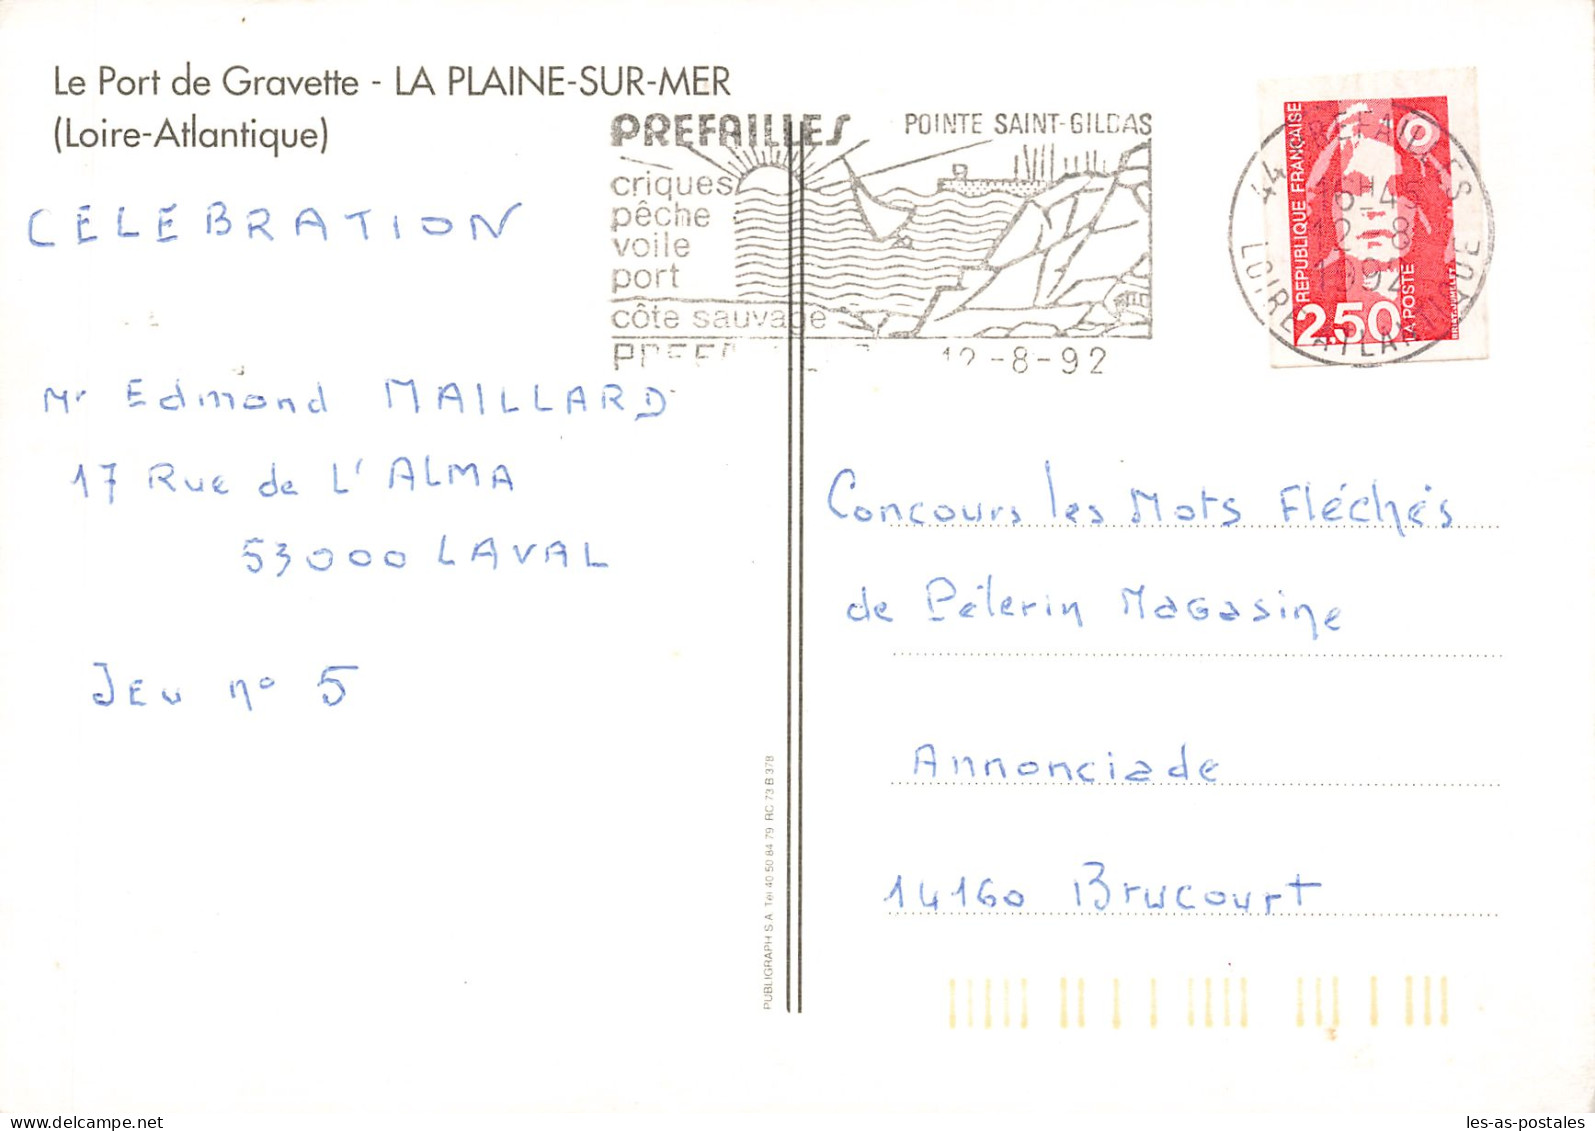 Le Port de Gravette - LA PLAINE-SUR-MER
(Loire-Atlantique)
PREFAILLES
POINTE SAINT-GILDAS
criques
pêche
voile
port
côte sauvage
12-8-92
44 PREFAILLES
16H45
12-8
1992
LOIRE ATLANTIQUE
REPUBLIQUE FRANÇAISE
2,50
LA POSTE
CELEBRATION
Mr Edmond MAILLARD
17 Rue de L'ALMA
53000 LAVAL
Jeu n° 5
Concours les Mots Fléchés
de Pélerin Magasine
Annonciade
14160 Brucourt
PUBLIGRAPH S.A. Tél 40 50 84 79 RC 73 B 378
les-as-postales